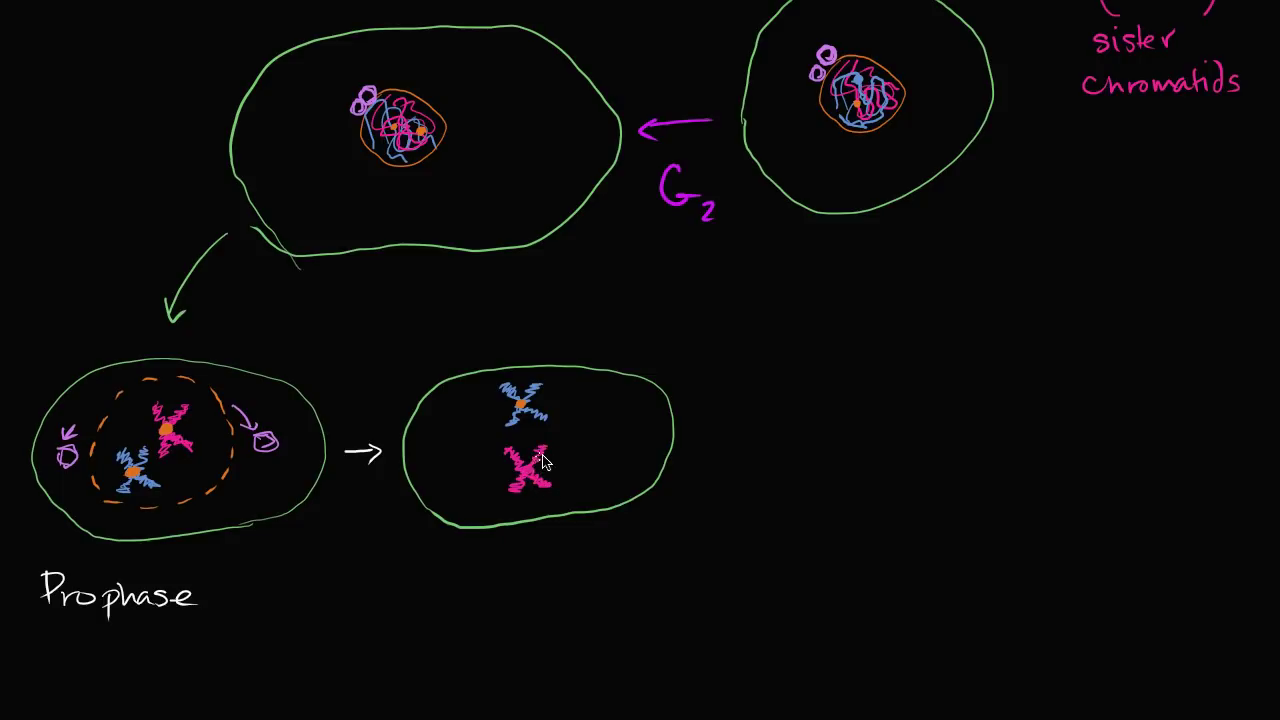 sister
chromatids
G2
Prophase